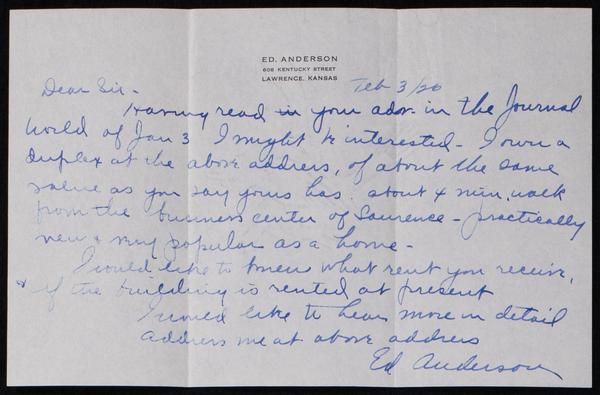 ED. ANDERSON
608 KENTUCKY STREET
LAWRENCE, KANSAS
Feb 3/20
Dear Sir -
Having read in your adv. in the Journal
World of Jan 3 I might be interested - I own a
duplex at the above address, of about the same
value as you say yours has. about 4 min. walk
from the business center of Lawrence - practically
new & very popular as a home -
I would like to know what rent you receive,
& if the building is rented at present
I would like to hear more in detail
Address me at above address
Ed Anderson